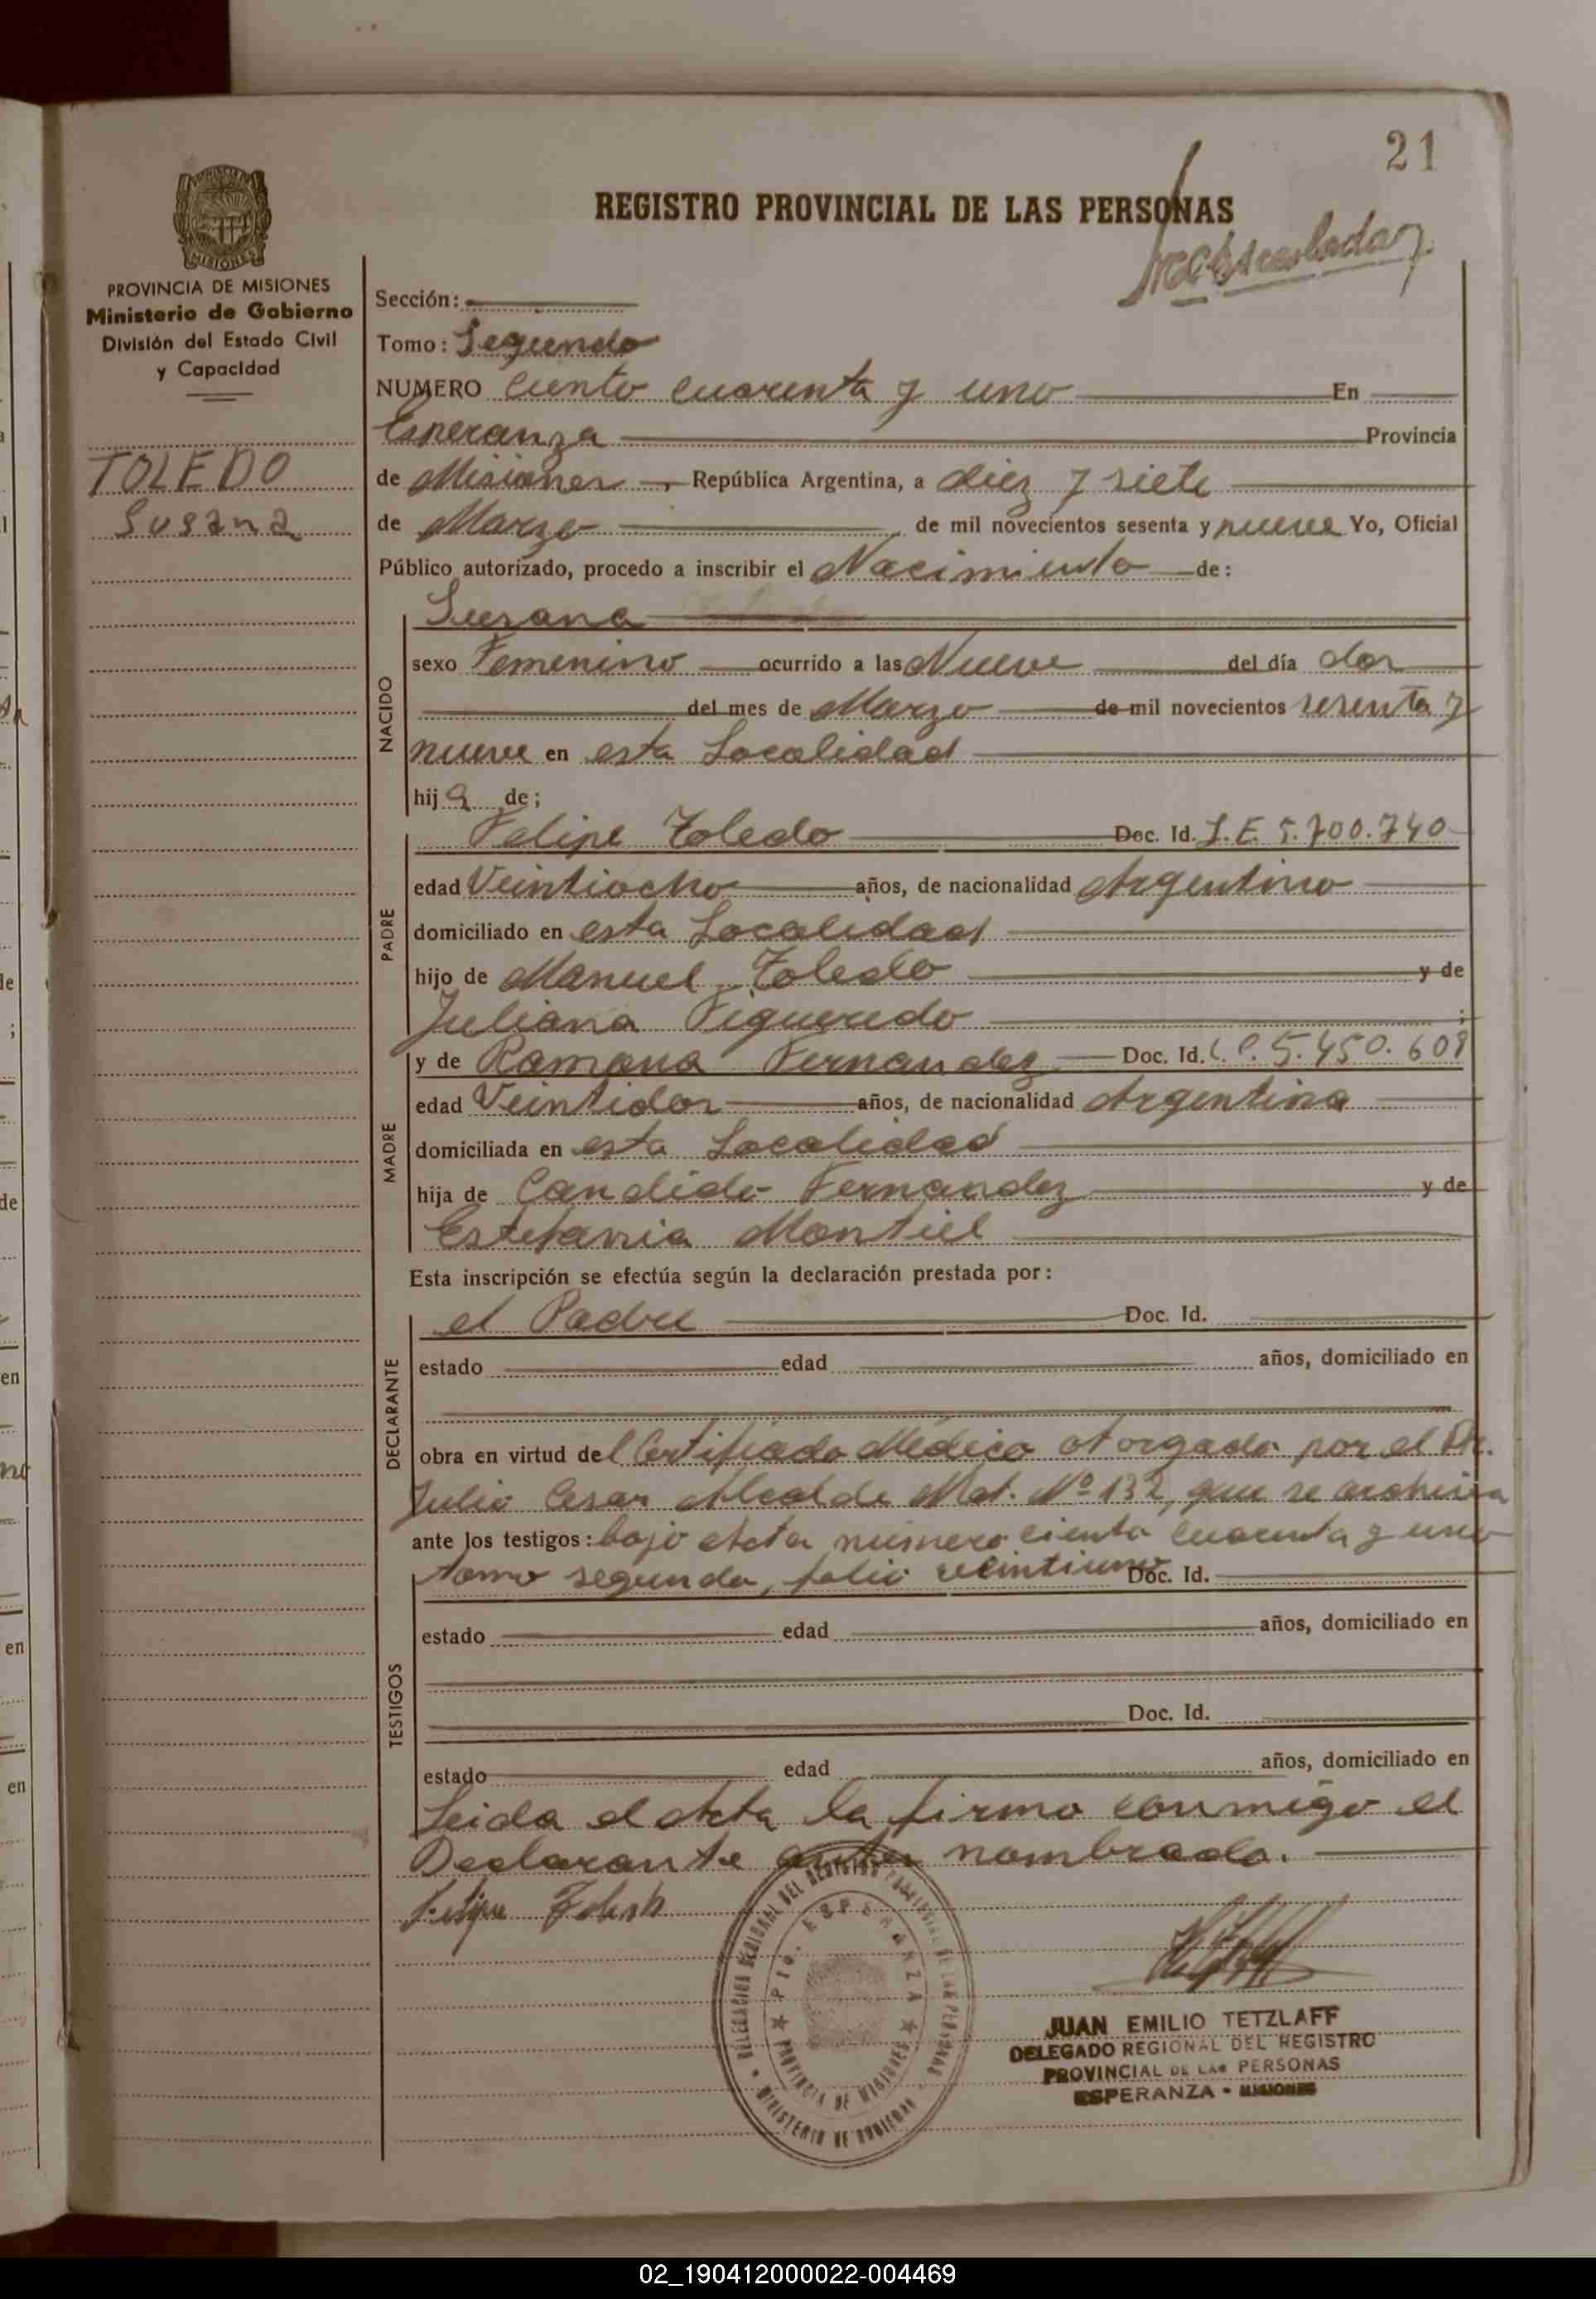 21
REGISTRO PROVINCIAL DE LAS PERSONAS
PROVINCIA DE MISIONES
Ministerio de Gobierno
División del Estado Civil
y Capacidad
TOLEDO
Susana
Sección:
Tomo: Segundo
NUMERO Ciento cuarenta y uno En
Esperanza Provincia
de Misiones, República Argentina, a diez y siete
de Marzo de mil novecientos sesenta y nueve Yo, Oficial
Público autorizado, procedo a inscribir el Nacimiento de:
Susana
NACIDO
sexo Femenino ocurrido a las Nueve del día dos
del mes de Marzo de mil novecientos sesenta y
nueve en esta Localidad
hija de;
PADRE
Felipe Toledo Doc. Id. L.E. 5.700.740
edad Veintiocho años, de nacionalidad Argentino
domiciliado en esta Localidad
hijo de Manuel Toledo y de
Juliana Figueredo ;
MADRE
y de Ramona Fernandez Doc. Id. L.C. 5.450.608
edad Veintidos años, de nacionalidad Argentina
domiciliada en esta Localidad
hija de Candido Fernandez y de
Estefania Montiel
Esta inscripción se efectúa según la declaración prestada por:
DECLARANTE
el Padre Doc. Id.
estado edad años, domiciliado en
obra en virtud del Certificado Médico otorgado por el Dr.
Julio Cesar Alcalde Mat. Nº 132, que se archiva
ante los testigos: bajo Acta número ciento cuarenta y uno
tomo segundo, folio veintiuno Doc. Id.
TESTIGOS
estado edad años, domiciliado en
Doc. Id.
estado edad años, domiciliado en
Leida el Acta la firma conmigo el
Declarante antes nombrado.
Felipe Toledo
DELEGACION REGIONAL DEL REGISTRO PROVINCIAL DE LAS PERSONAS
MINISTERIO DE GOBIERNO
Pto. ESPERANZA
PROVINCIA DE MISIONES
JUAN EMILIO TETZLAFF
DELEGADO REGIONAL DEL REGISTRO
PROVINCIAL DE LAS PERSONAS
ESPERANZA - MISIONES
02_190412000022-004469